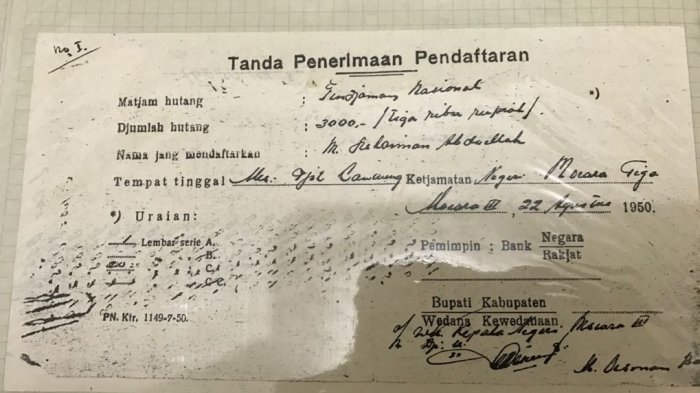 no I.
Tanda Penerimaan Pendaftaran
Matjam hutang : Pindjaman Nasional *)
Djumlah hutang : 3000,- / Tiga ribu rupiah /
Nama jang mendaftarkan : M. Sulaiman Abdullah
Tempat tinggal Ketjamatan Negeri Moeara Tiga
Moeara III, 22 Agustus 1950.
*) Uraian:
Lembar serie A.
B.
C.
Pemimpin : Bank Negara
Rakjat
Bupati Kabupaten
Wedana Kewedanaan.
Kepala Negeri Moeara III
PN. Ktr. 1149-7-50.